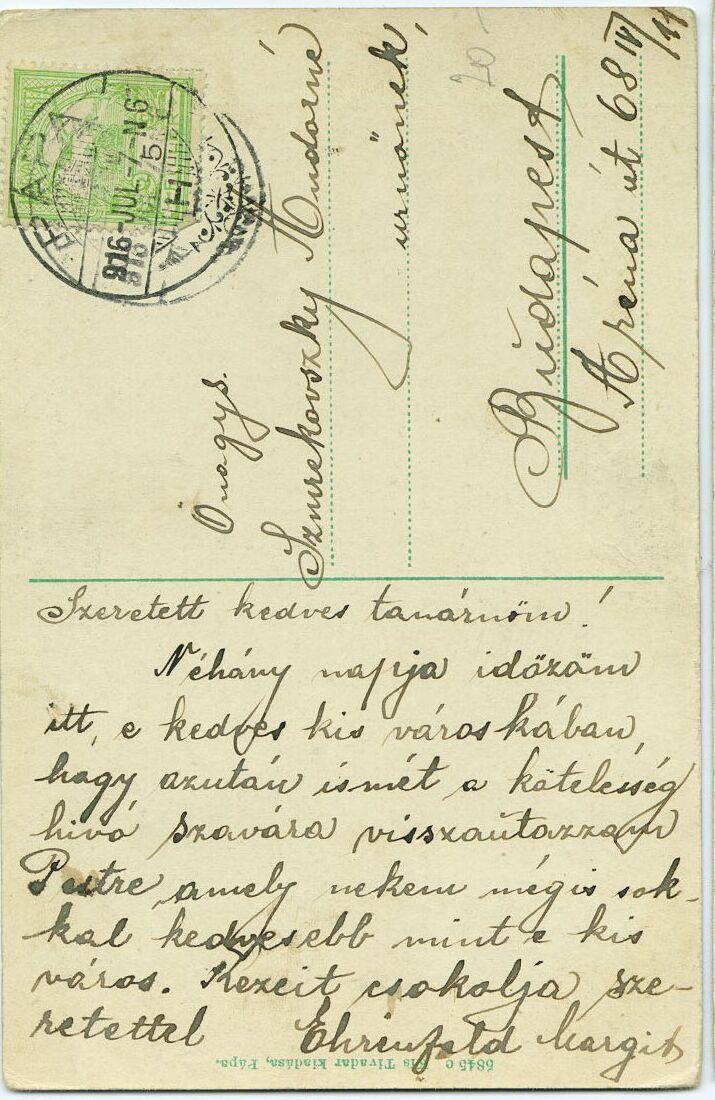 PÁPA
916-JUL-7-N6
5
H
20-
Önagys.
Szmrekovszky Andorné
urnőnek,
Budapest
Aréna út 68 IV/11
Szeretett kedves tanárnőm!
Néhány napja időzöm
itt, e kedves kis városkában,
hogy azután ismét a kötelesség
hivó szavára visszautazzam
Pestre, amely nekem mégis sok-
kal kedvesebb mint e kis
város. Kezeit csokolja sze-
retettel Ehrenfeld Margit
5845 c Kis Tivadar kiadása, Pápa.